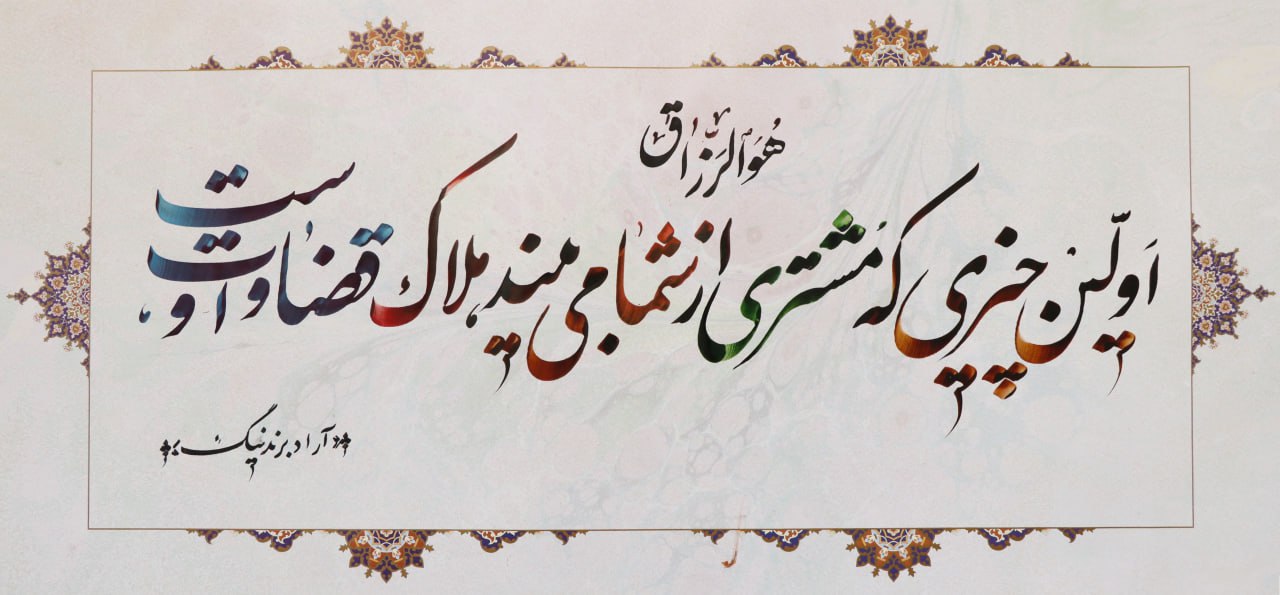 هُوَ الرَّزاق
اَوّلین چیزی که مُشتری از شما می‌بیند، ملاک قضاوت اوست
آراد برندینگ